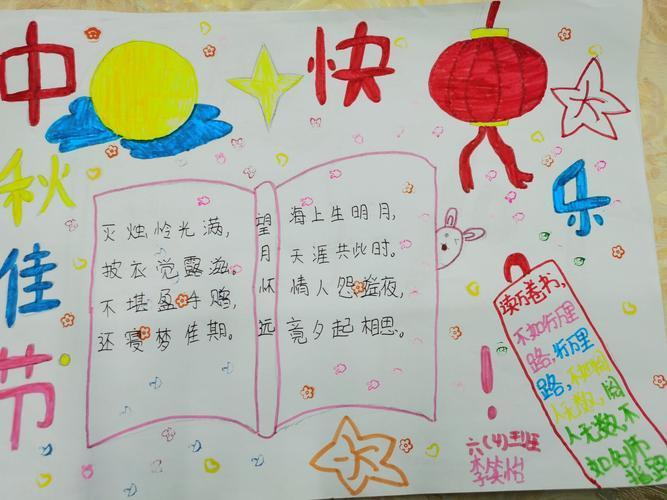 中
快
乐
秋
佳
节
灭烛怜光满,
披衣觉露滋。
不堪盈手赠,
还寝梦佳期。
望月怀远
海上生明月,
天涯共此时。
情人怨遥夜,
竟夕起相思。
读万卷书,
不如行万里
路,行万里
路,不如阅
人无数,阅
人无数,不
如名师
!
六(4)班
李笑怡